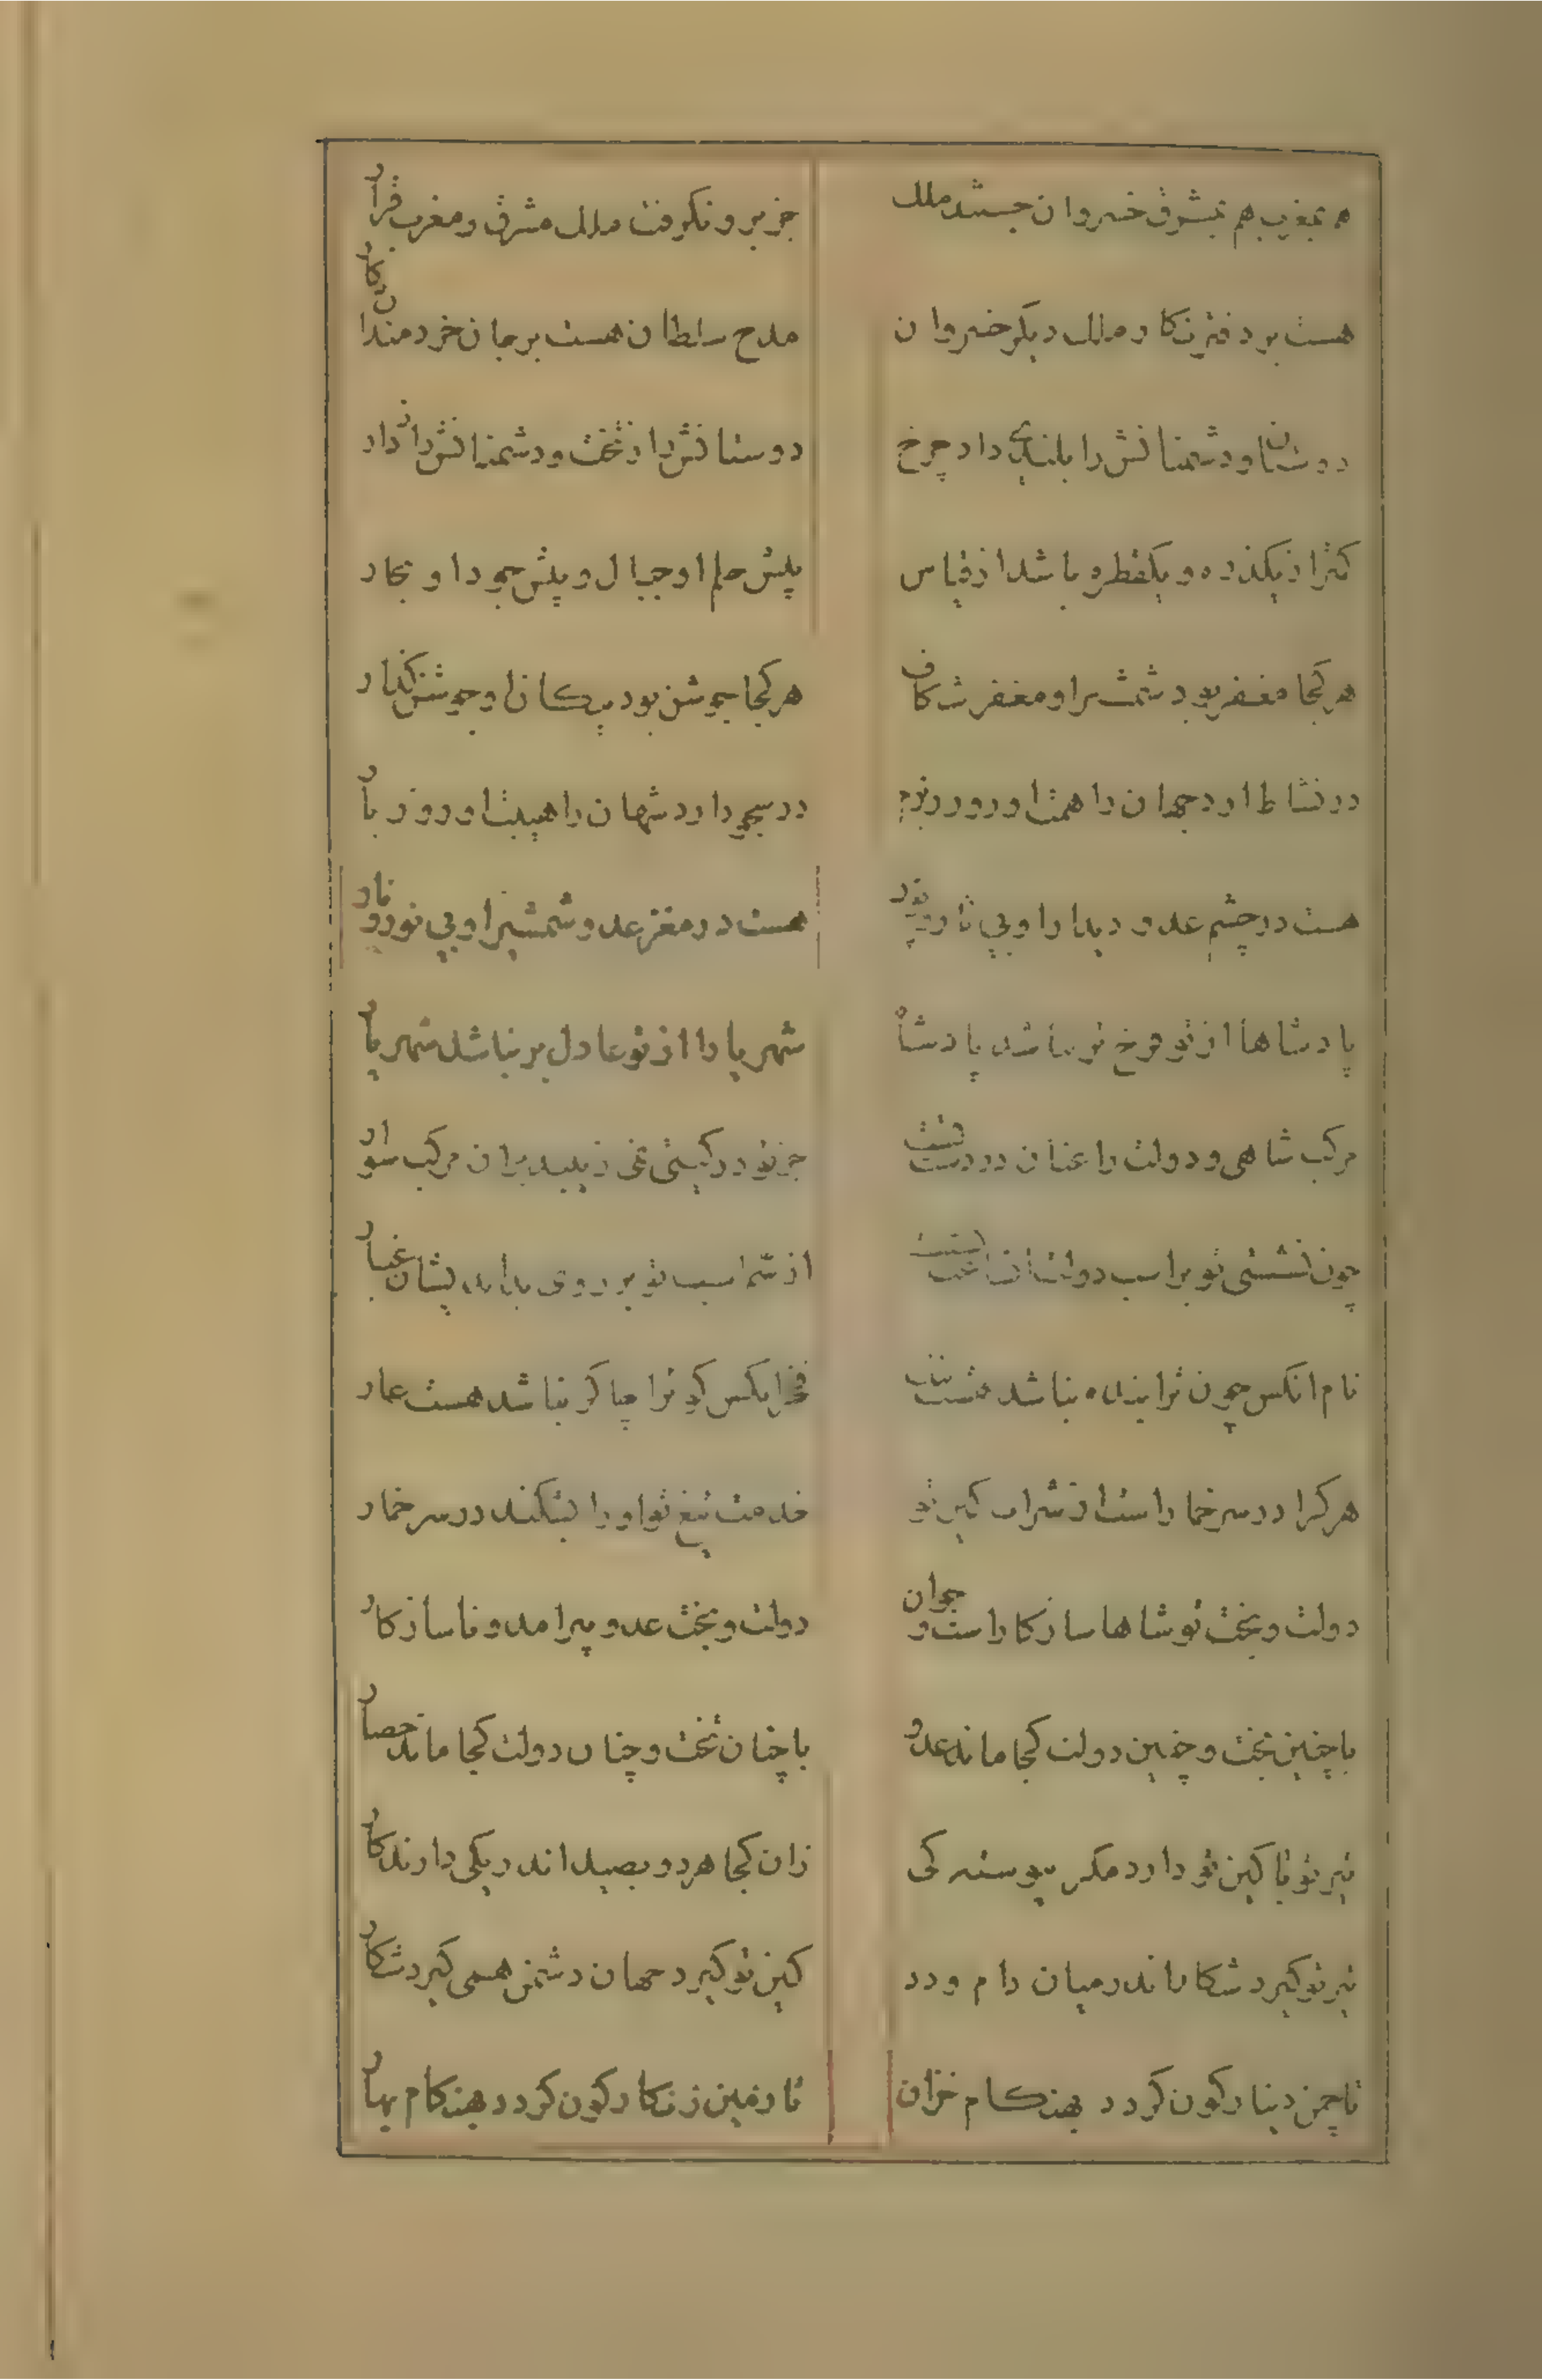 هم بمغرب هم بمشرق خسروان جستند ملک
جز برو نکرفت ملک مشرق و مغرب قرار
هست بر دفتر نکار ملک دیکر خسروان
مدح سلطان هست بر جان خردمندان نکار
دوستان و دشمنانش را بلندی داد چرخ
دوستانش را ز تخت و دشمنانش را ز دار
کمتر از یکذره و یکقطره باشد از قیاس
پیش حلم او جبال و پیش جود او بحار
هر کجا مغفر بود شمشیر او مغفر شکاف
هر کجا جوشن بود پیکان او جوشن کذار
در نشاط ارد جهان را همت او روز بزم
در سجود ارد شهان را هیبت او روز بار
هست در چشم عدو دیدار او بی نار و نور
هست در مغز عدو شمشیر او بی نور و نار
پادشاها از تو فرخ تر نباشد پادشاه
شهریارا از تو عادل بر نباشد شهریار
مرکب شاهی و دولت را عنان در دست تست
جز تو در کیتی نمی زیبد بران مرکب سوار
چون نشستی تو بر اسب دولت از
از سم اسب تو بر روی بد اندیشان غبار
نام انکس چون ترا بنده نباشد هست ننک
فخر ایکس کو ترا چاکر نباشد هست عار
هر کرا در سر خمار است از شراب کین تو
خدمت تیغ تو او را بشکند در سر خمار
دولت و بخت تو شاها سازکار است و جوان
دولت و بخت عدو پیر امد و ناسازکار
با چنین بخت و چنین دولت کجا ماند عدو
با چنان بخت و چنان دولت کجا ماند حصار
تیر تو با کین تو دارد مکر پیوستکی
زان کجا هر دو بصید اندر یکی دارند کار
تیر تو کیرد شکار اندر میان دام و دد
کین تو کیرد جهان دشمن همی کیرد شکار
تا چمن دینار کون کردد بهنکام خزان
تا زمین زنکار کون کردد بهنکام بهار